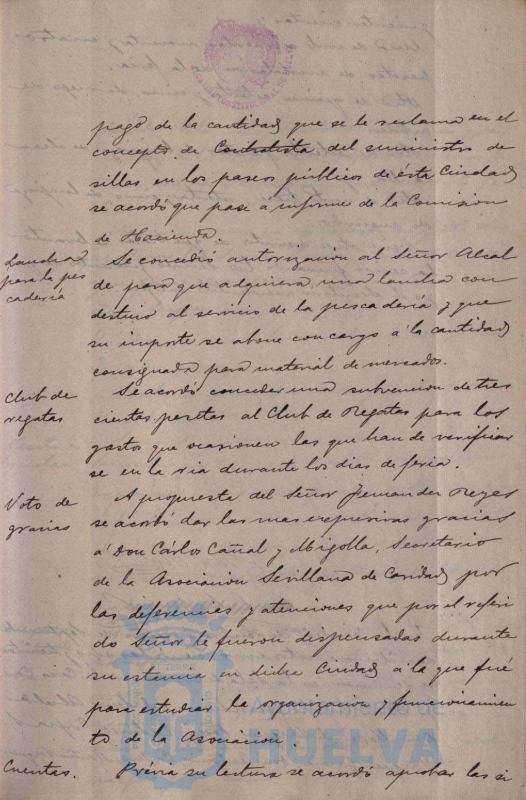 pago de la cantidad que se le reclama en el
concepto de Contratista del suministro de
sillas en los paseos públicos de ésta Ciudad
se acordó que pase á informe de la Comision
de Hacienda.
Lancha
para la pes
cadería
Se concedió autorizacion al Señor Alcal
de para que adquiera una lancha con
destino al servicio de la pescadería y que
su importe se abone con cargo á la cantidad
consignada para material de mercados.
Club de
regatas
Se acordó conceder una subvencion de tres
cientas pesetas al Club de Regatas para los
gastos que ocasionen las que han de verificar
se en la ria durante los dias de feria.
Voto de
gracias
A propuesta del Señor Fernandez Reyes
se acordó dar las mas expresivas gracias
á Don Cárlos Cañal y Migolla, Secretario
de la Asociacion Sevillana de Caridad por
las deferencias y atenciones que por el referi
do Señor le fueron dispensadas durante
su estancia en dicha Ciudad á la que fué
para estudiar la organizacion y funcionamien
to de la Asociacion.
HUELVA
Cuentas.
Prévia su lectura se acordó aprobar las si